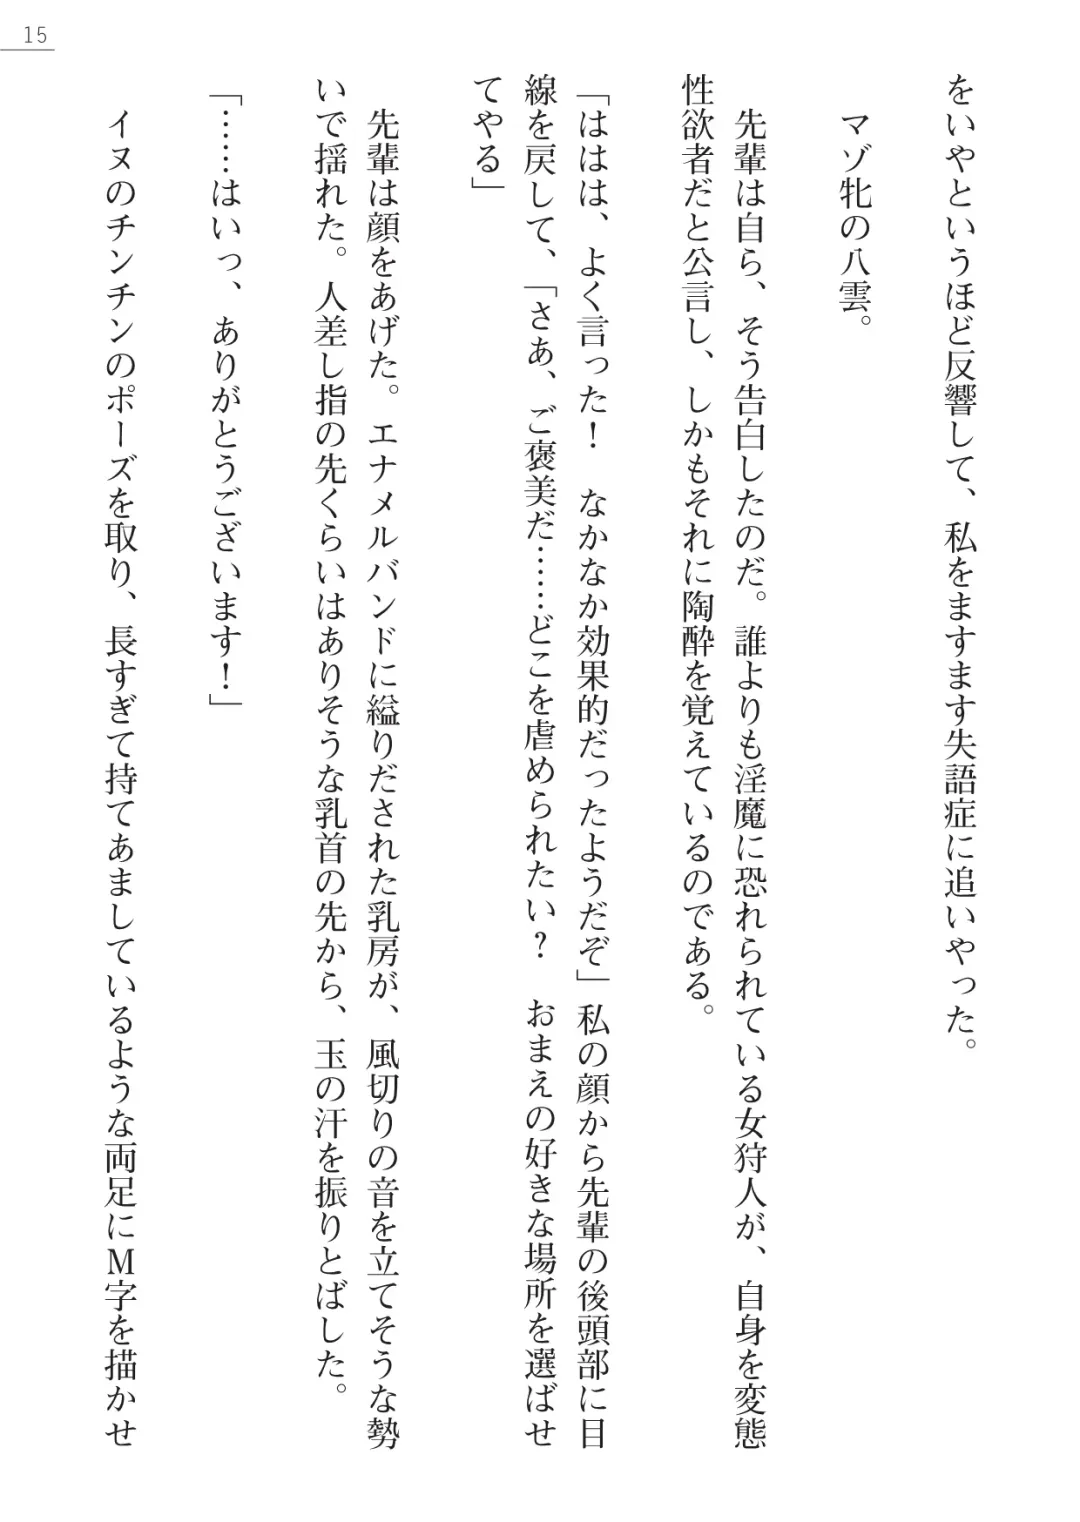 15
をいやというほど反響して、私をますます失語症に追いやった。
マゾ牝の八雲。
先輩は自ら、そう告白したのだ。誰よりも淫魔に恐れられている女狩人が、自身を変態
性欲者だと公言し、しかもそれに陶酔を覚えているのである。
「ははは、よく言った！　なかなか効果的だったようだぞ」私の顔から先輩の後頭部に目
線を戻して、「さぁ、ご褒美だ……どこを虐められたい？　おまえの好きな場所を選ばせ
てやる」
先輩は顔をあげた。エナメルバンドに縊りだされた乳房が、風切りの音を立てそうな勢
いで揺れた。人差し指の先くらいはありそうな乳首の先から、玉の汗を振りとばした。
「……はいっ、ありがとうございます！」
イヌのチンチンのポーズを取り、長すぎて持てあましているような両足にＭ字を描かせ